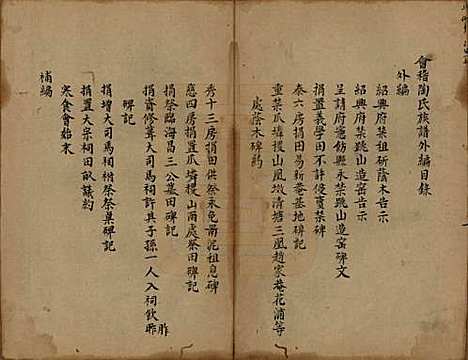 會稽陶氏族譜外編目錄
外編
紹興府禁祖斫蔭木告示
紹興府禁跳山造窑告示
呈請府憲飭縣永禁跳山造窑碑文
捐置義學田不許侵賣禁碑
泰六房捐田易新菴基地碑記
重禁瓜墇搜山風墩清塘三凰趙家菴花浦等
處蔭木碑約
秀十三房捐田供祭永免 祖息碑
應四房捐置瓜墇搜山兩處祭田碑記
捐祭臨海昌三公墓田碑記
捐齋修葺大司馬祠許其子孫一人入祠飲胙
碑記
捐增大司馬祠袝祭祭菓碑記
捐置大宗祠田畝議約
寒食會始末
補編